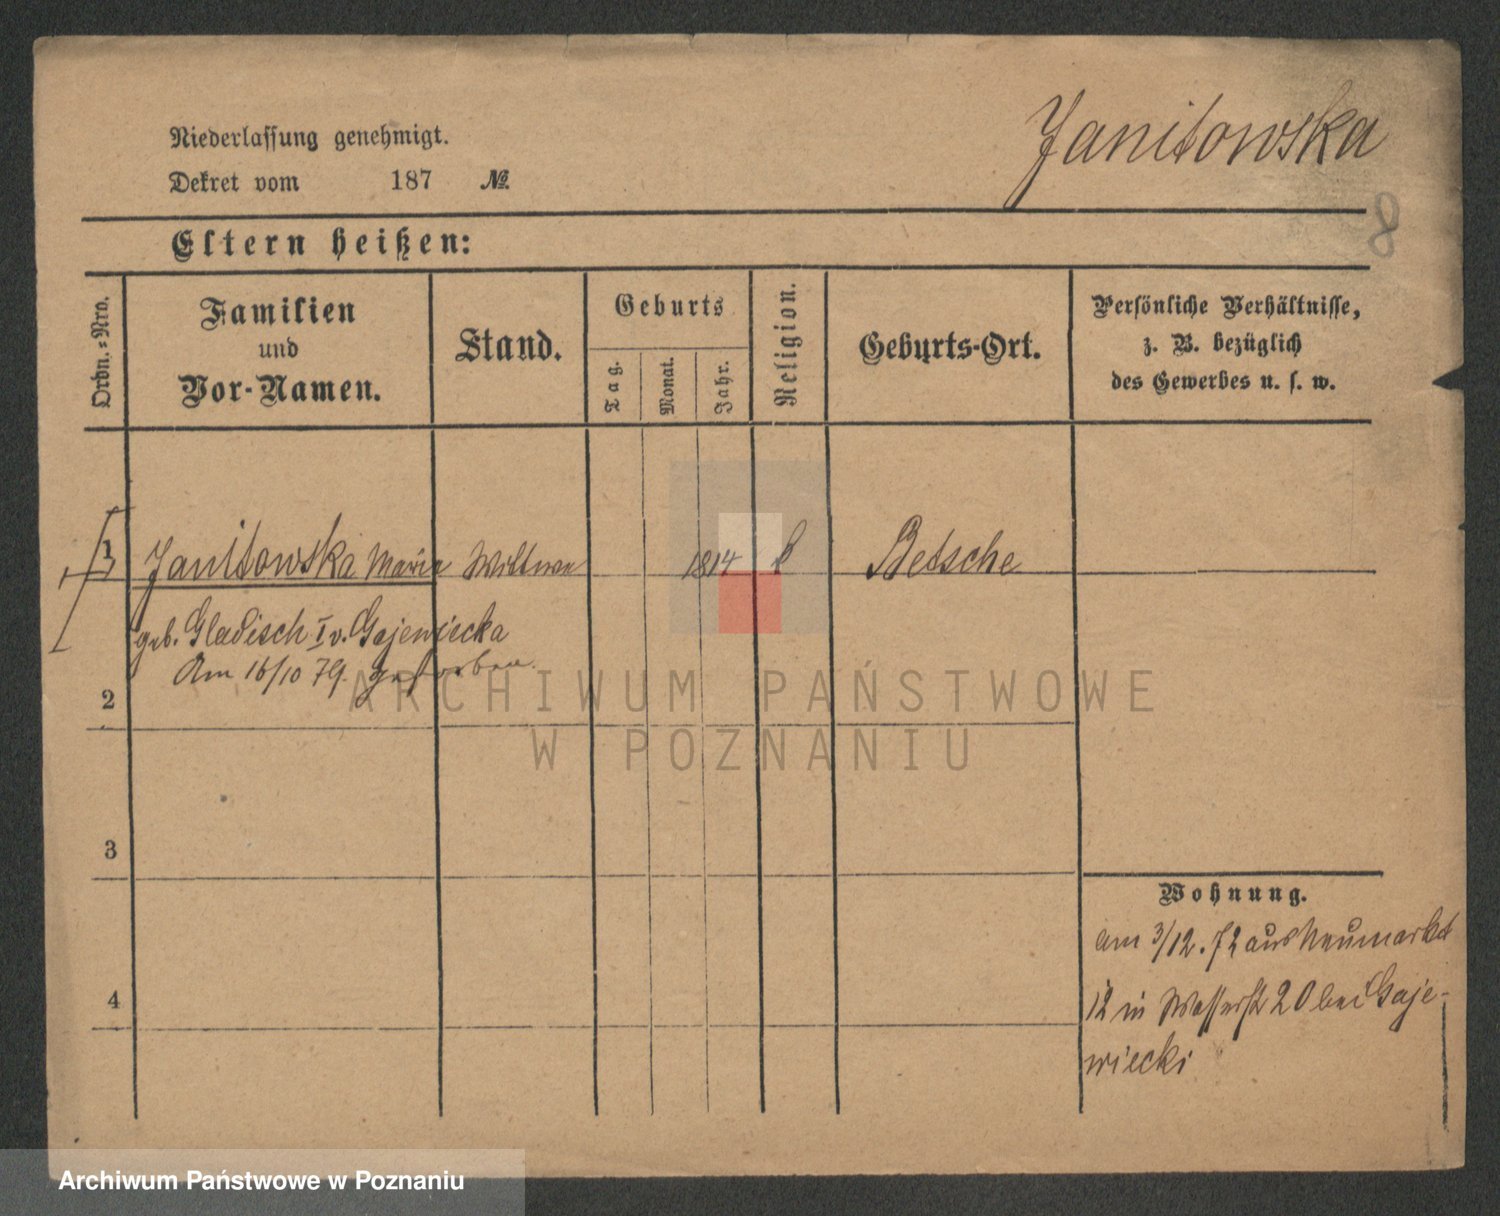 Janitowska
Niederlassung genehmigt.
Dekret vom 187 №
8
Eltern heißen:
Ordn.-Nro.
Familien
und
Vor-Namen.
Stand.
Geburts
Tag.
Monat.
Jahr.
Religion.
Geburts-Ort.
Persönliche Verhältnisse,
z. B. bezüglich
des Gewerbes u. s. w.
1 Janitowska Marie Wittwe 1814 k Betsche
geb. Gladisch I v. Gajewiecka
Am 16/10 79. gestorben.
2
3
4
Wohnung.
am 3/12. 72 aus Neumarkt
12 in Wasserstr 20 bei Gaje-
wiecki
ARCHIWUM PAŃSTWOWE
W POZNANIU
Archiwum Państwowe w Poznaniu